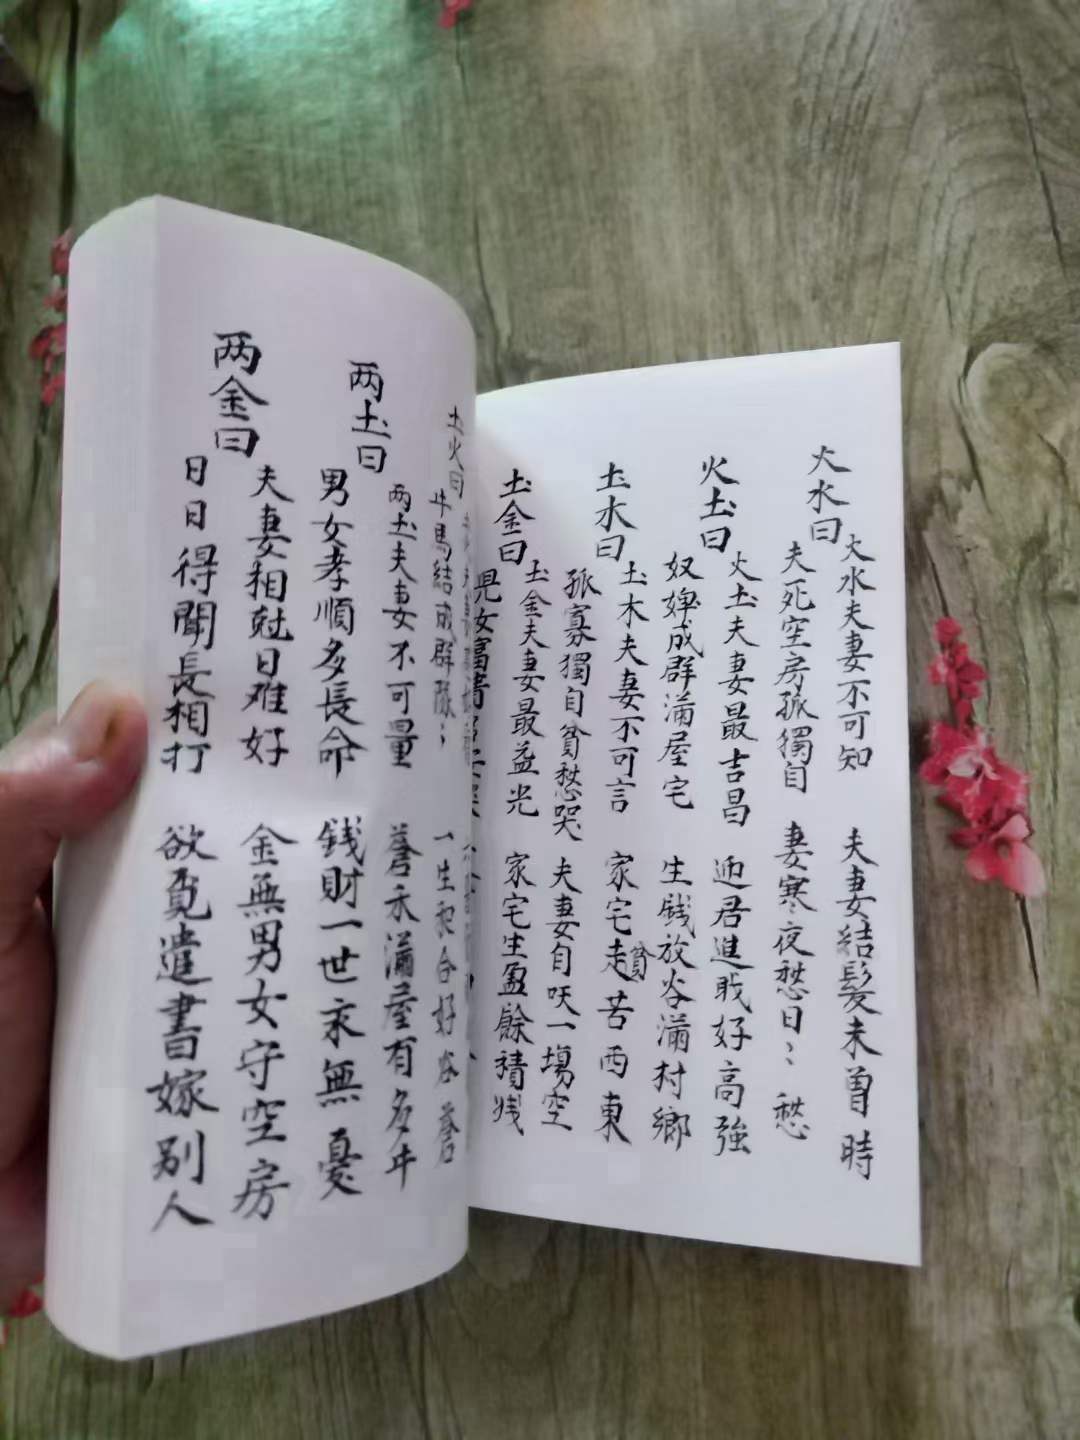 火水曰
火水夫妻不可知 夫妻結髮未曾時
夫死空房孤獨自 妻寒夜愁日〻愁
火土曰
火土夫妻最吉昌 迊君進戝好高強
奴婢成群滿屋宅 生銭放谷滿村鄉
土木曰
土木夫妻不可言 家宅趋貧苦西東
孤寡獨自貧愁哭 夫妻自呅一塲空
土金曰
土金夫妻最益光 家宅生盈餘積
兒女富
土火曰
牛馬結成群隊〻 一生和合好谷蒼
两土曰
两土夫妻不可量 蒼禾滿屋有多牛
男女孝順多長命 錢財一世永無憂
两金曰
夫妻相尅日难好 金無男女守空房
日日得聞長相打 欲覓遣書嫁别人